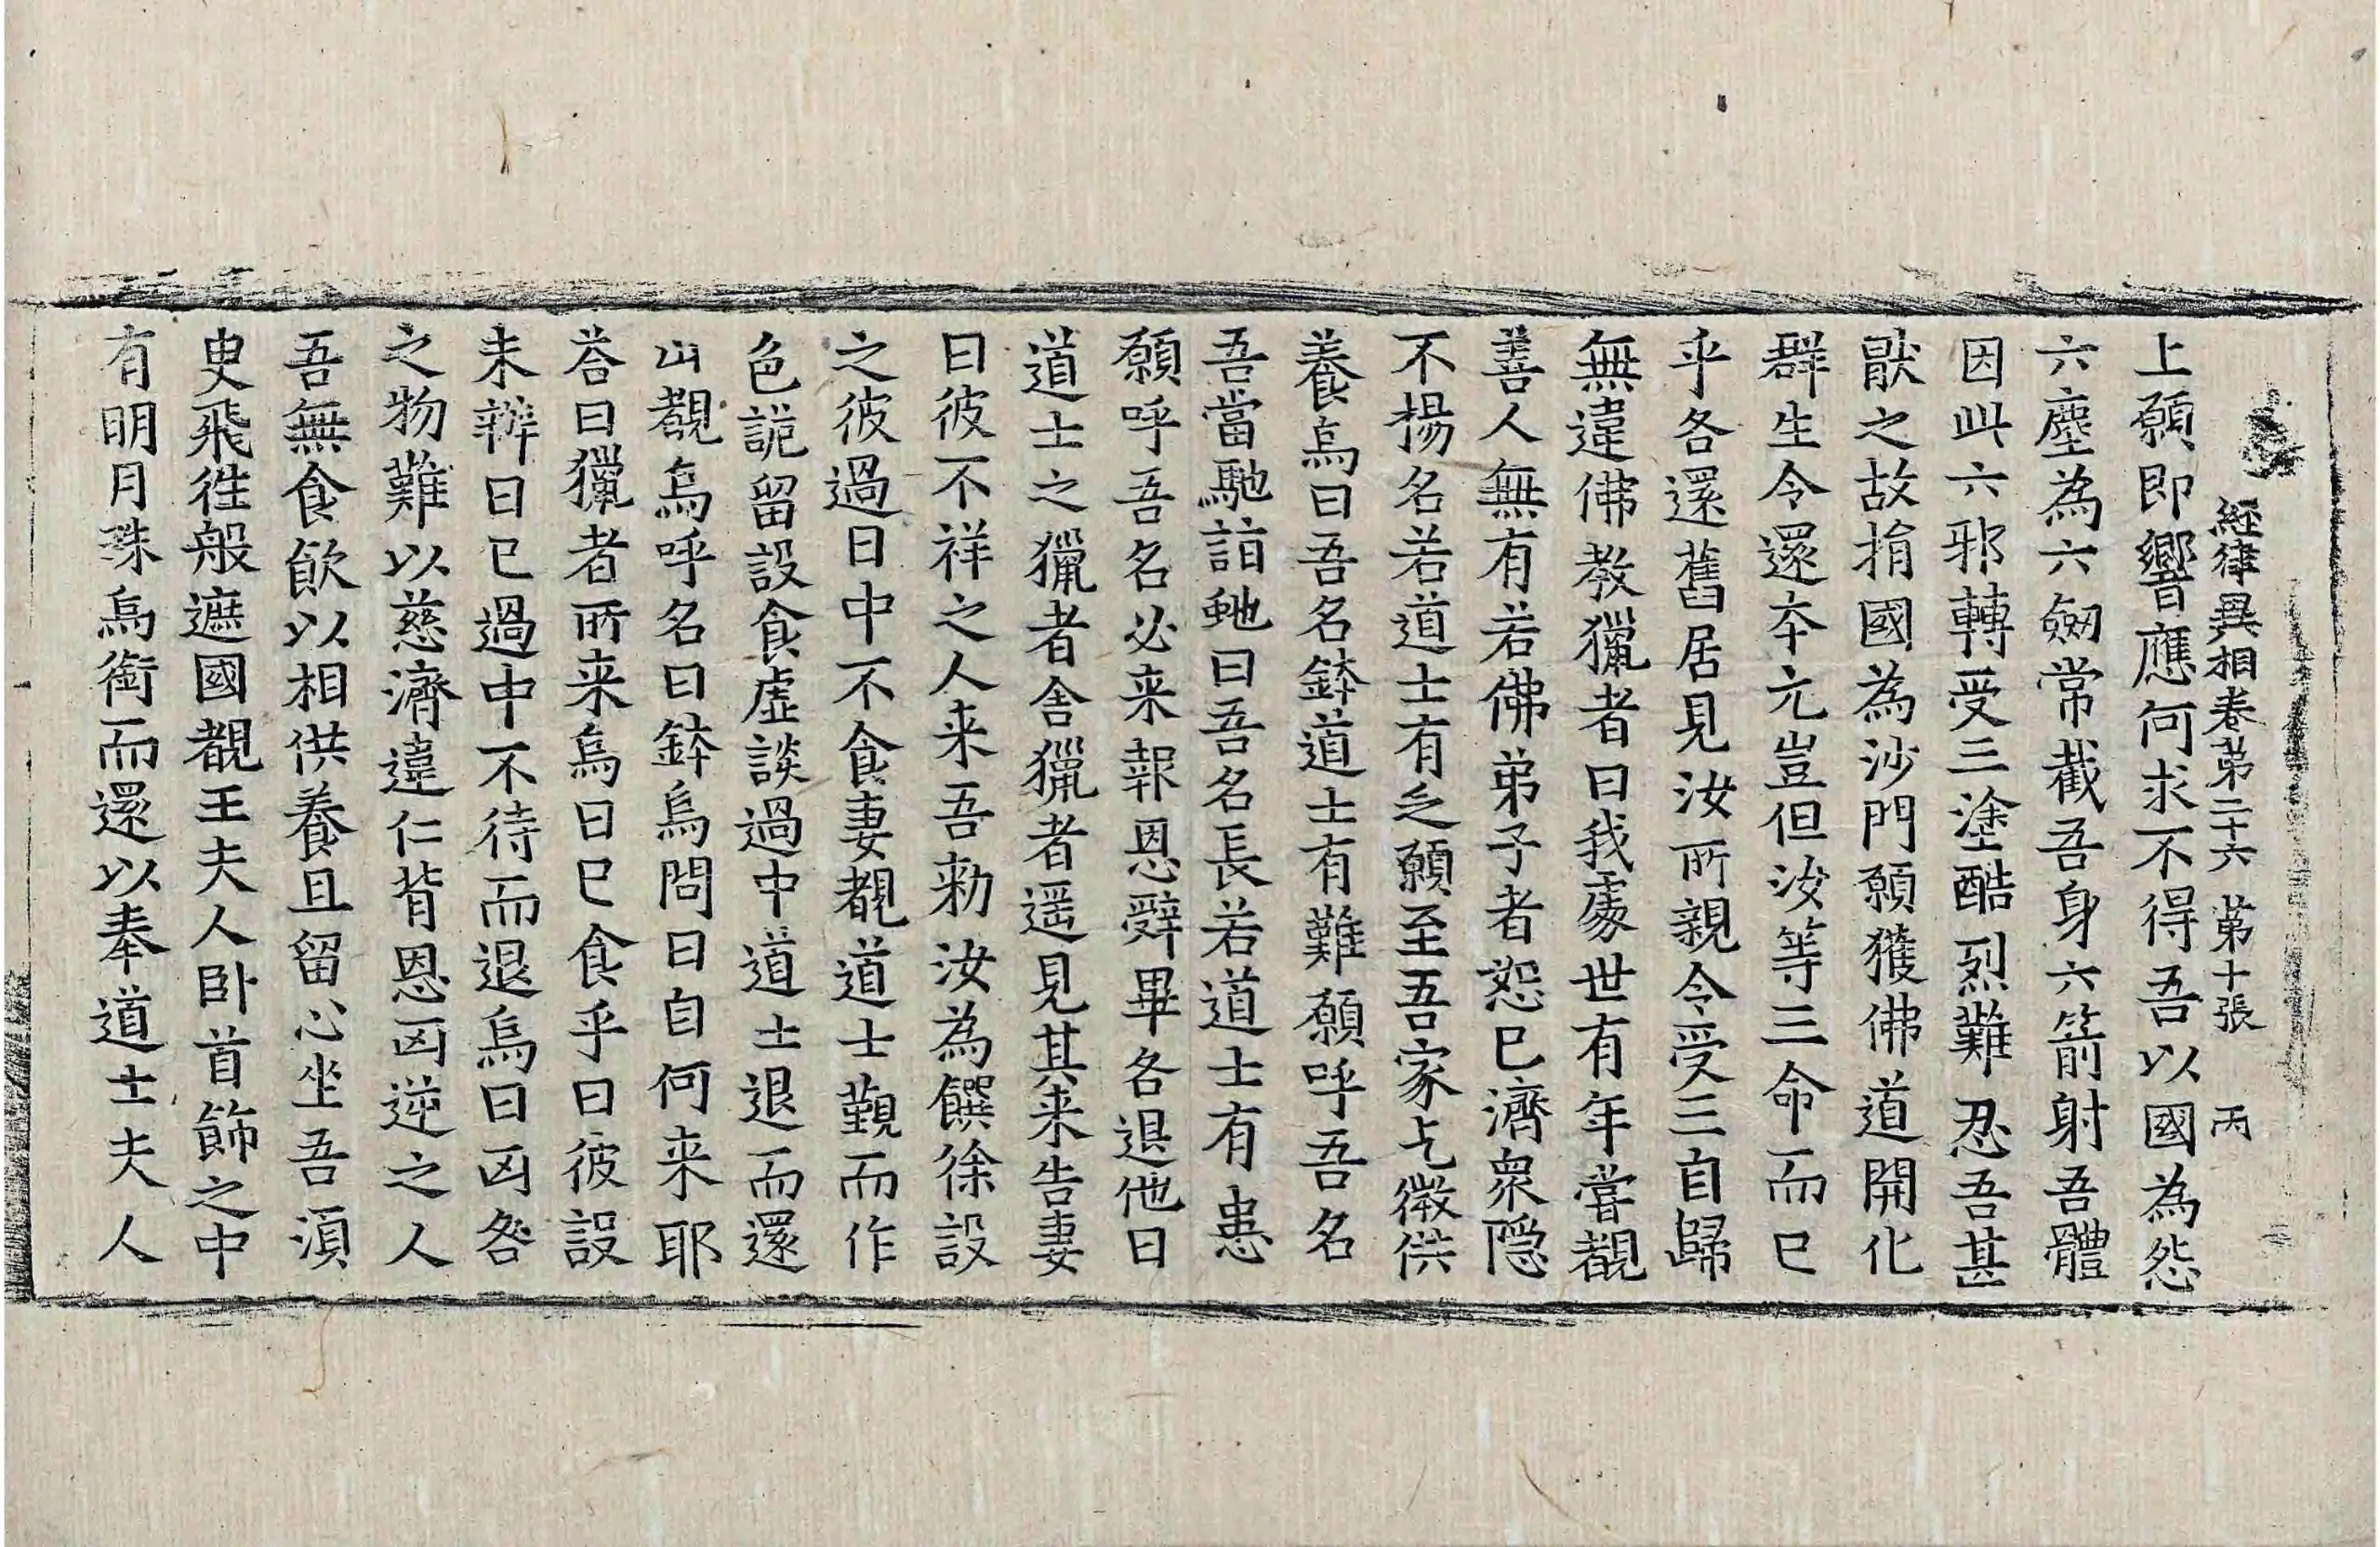 經律異相卷第二十六　第十張　丙
上願即響應何求不得吾以國為怨
六塵為六劒常截吾身六箭射吾體
因此六邪轉受三塗酷烈難忍吾甚
猒之故捐國為沙門願獲佛道開化
群生令還夲元豈但汝等三命而已
乎各還舊居見汝所親令受三自歸
無違佛教獵者曰我處世有年嘗覩
善人無有若佛弟子者恕已濟衆隱
不揚名若道士有乏願至吾家乞微供
養烏曰吾名鉢道士有難願呼吾名
吾當馳詣虵曰吾名長若道士有患
願呼吾名必来報恩辭畢各退他日
道士之獵者舍獵者遥見其来告妻
曰彼不祥之人来吾勑汝為饌徐設
之彼過日中不食妻覩道士覲而作
色詭留設食虛談過中道士退而還
山覩烏呼名曰鉢烏問曰自何来耶
荅曰獵者所来烏曰已食乎曰彼設
未辨日已過中不待而退烏曰凶咎
之物難以慈濟違仁背恩凶逆之人
吾無食飲以相供養且留心坐吾湏
臾飛徃般遮國覩王夫人卧首飾之中
有明月珠烏銜而還以奉道士夫人